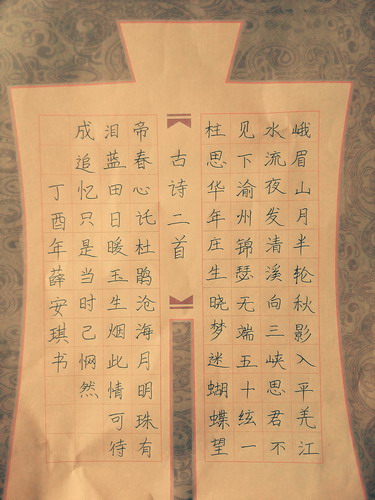 峨眉山月半轮秋影入平羌江
水流夜发清溪向三峡思君不
见下渝州锦瑟无端五十絃一
柱思华年庄生晓梦迷蝴蝶望
古诗二首
帝春心托杜鹃沧海月明珠有
泪蓝田日暖玉生烟此情可待
成追忆只是当时已惘然
丁酉年薛安琪书